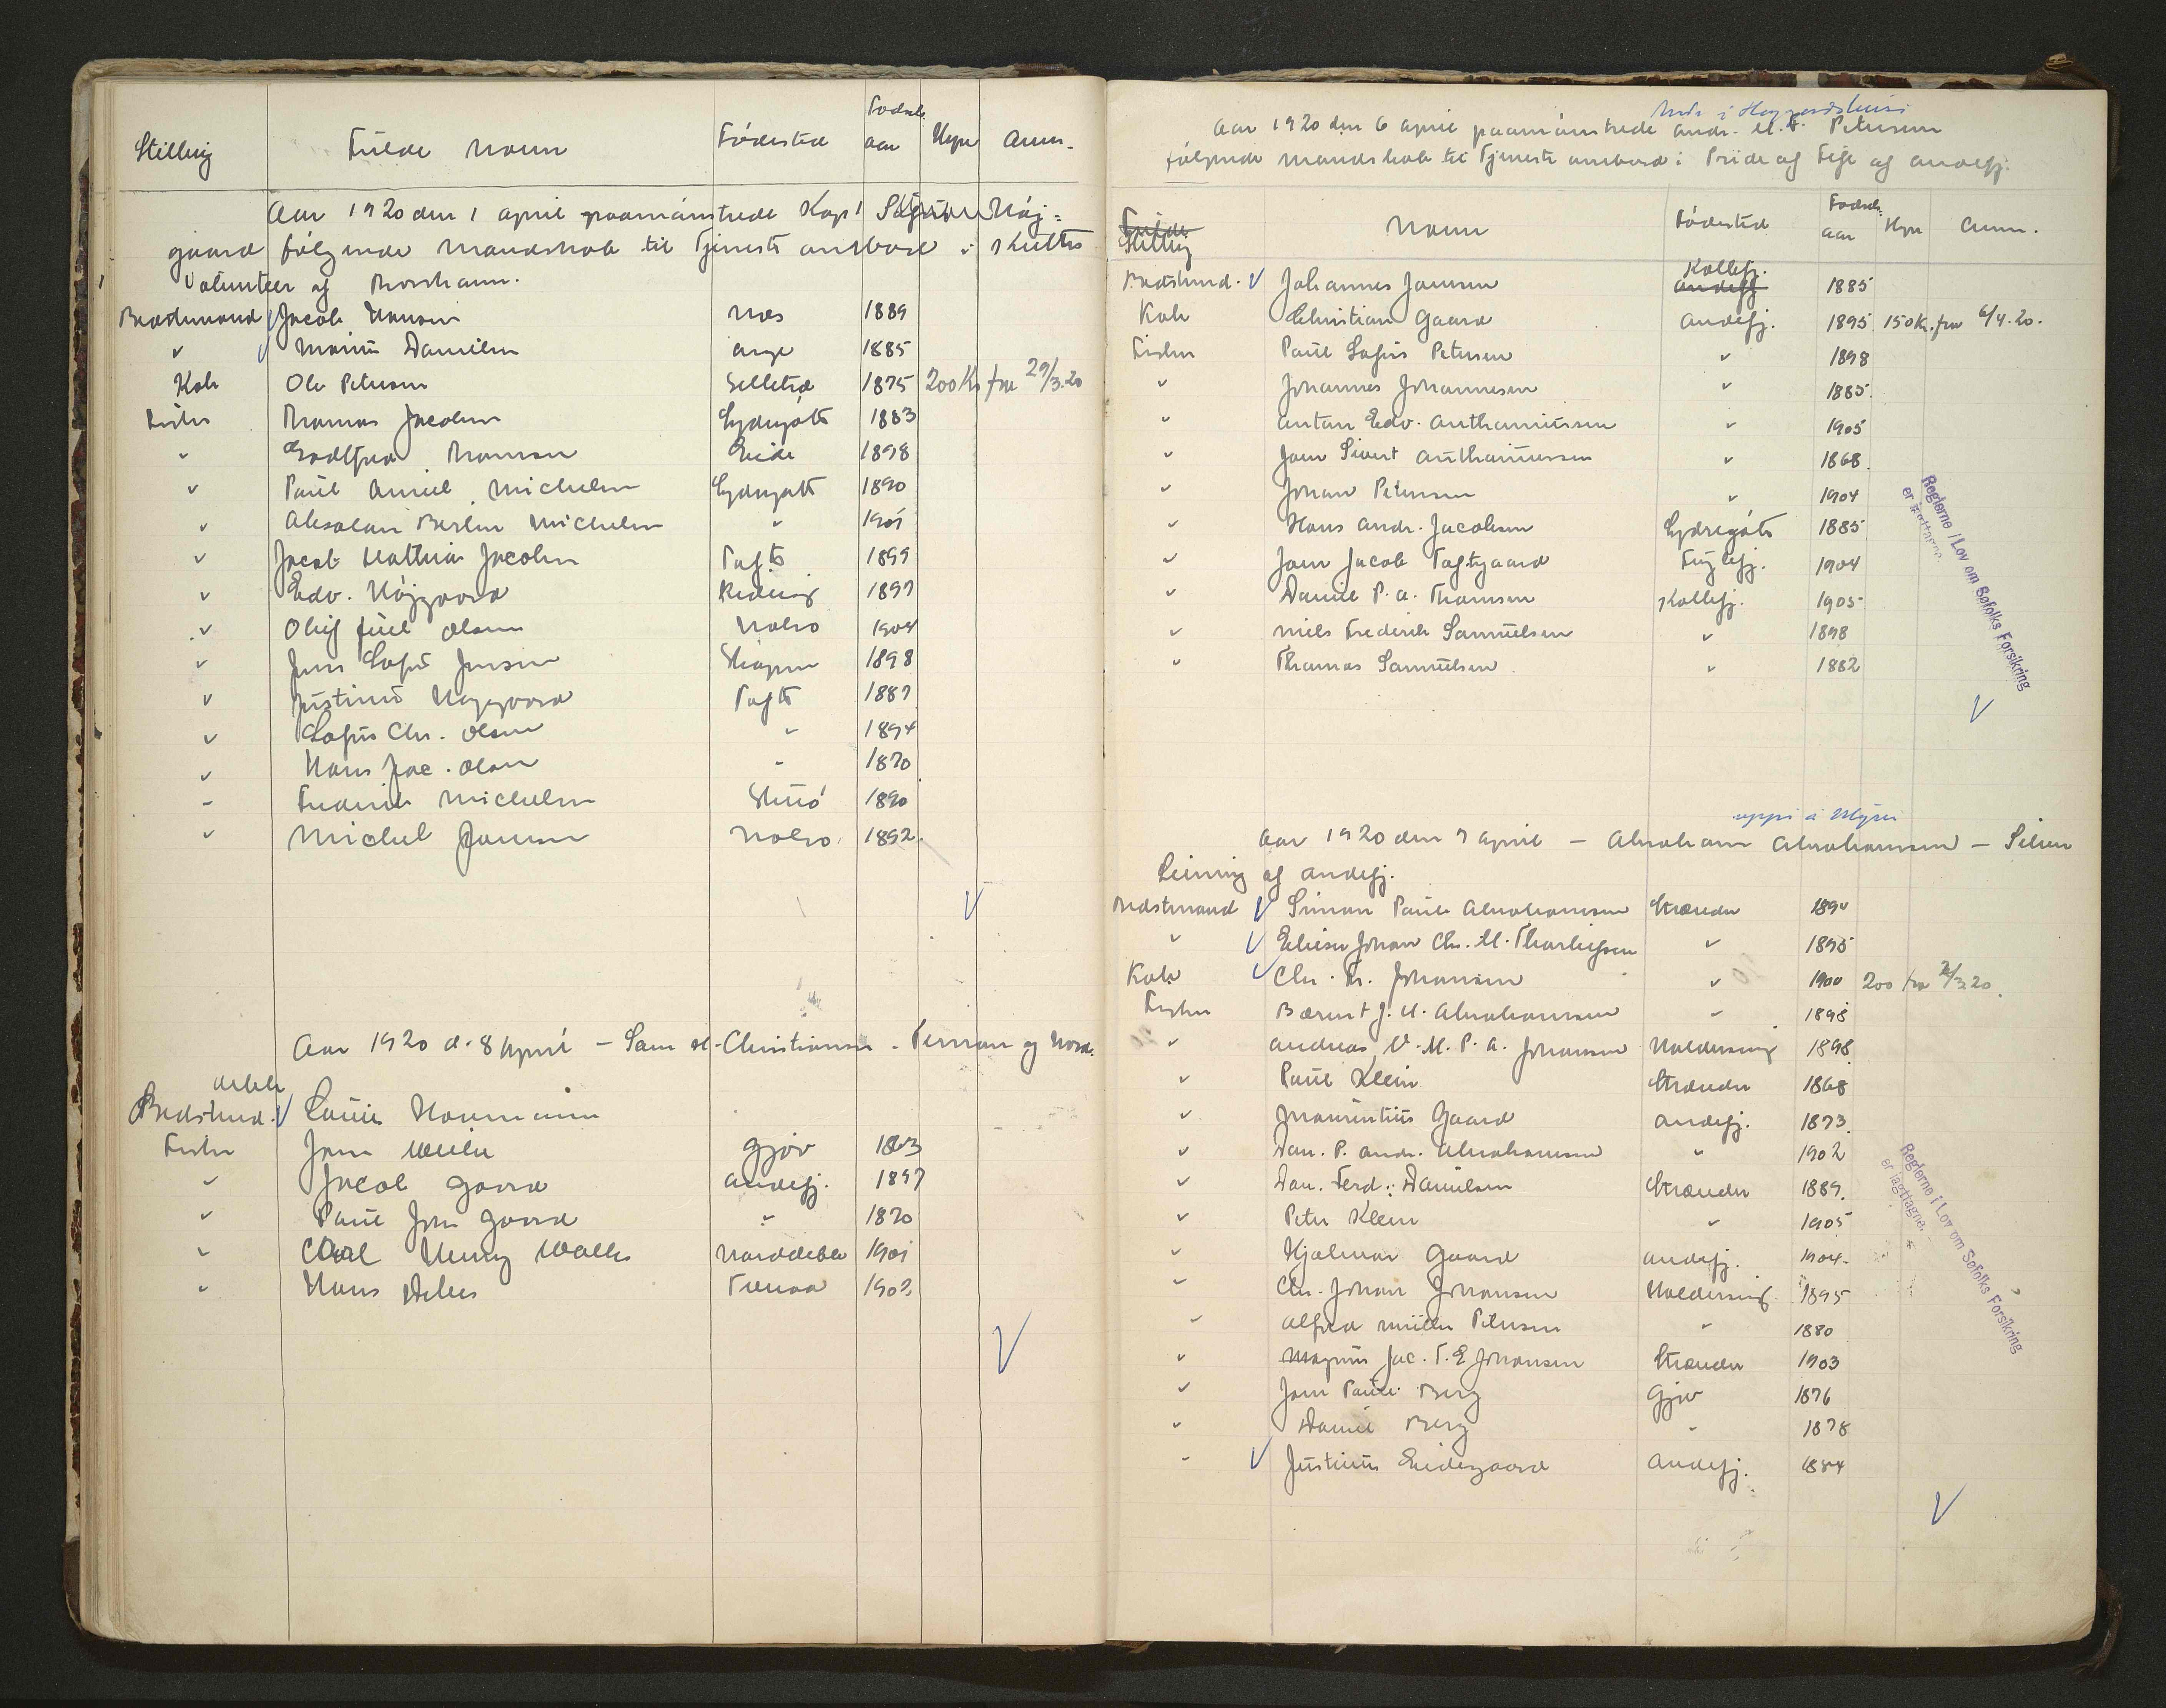 Stilling Fulde Navn Fødested Fødsels aar Hyre Anm.
Aar 1920 den 1 april paamønstrede Kapt Højgaard følgende Mandskab til Tjeneste ombord i Kutter
Volunteer af Thorshavn.
Bedstemand Jacob Hansen Næs 1889
" Danielsen 1885
Kok Ole Petersen Selletræ 1875 200 Kr fra 29/3.20
Fisker Thomas Jacobsen Sydregøte 1883
" Godtfred Thomsen Eide 1898
" Paul Michelsen Sydregøte 1890
" Absalon Berlin Michelsen " 1901
" Jacob Mathias Jacobsen Tofte 1899
" Edv. Højgaard Reduig 1897
" Oluf Juel Olsen Nolsø 1904
" Jens Sofus Jensen Skopun 1898
" Justinus Højgaard Tofte 1887
" Sofus Chr. Olsen " 1894
" Hans Jac. Olsen " 1870
" Frederik Michelsen Skuø 1890
" Michel Joensen Nolsø 1892.
Aar 1920 d. 8 April – Sam Christiansen –
Bedstmd. Louis Normann
Fisker Jens Gjov 1863
" Jacob Gaard Andefj. 1897
" Paul Joen Gaard " 1870
" Carl Henry Norddeble 1901
" Hans 1902
Aar 1920 den 6 april paamønstrede Andr. M. F. Petersen
følgende Mandskab til Tjeneste ombord i Pride of Fife af Andefj.
Fulde
Stilling Navn Fødested Fødsels aar Hyre Anm.
Bedstmd. Johannes Joensen Andefj Kollefj. 1885
Kok Christian Gaard Andefj. 1895 150 Kr. fra 6/4.20.
Fisker Paul Sofus Petersen " 1898
" Johannes Johannesen " 1885.
" Anton Edv. Anthoniussen " 1905
" Joen Sivert Anthoniussen " 1868.
" Johan Petersen " 1904
" Hans Andr. Jacobsen Sydregøte 1885
" Joen Jacob Toftegaard Fuglefj. 1904
" Daniel P. A. Thomsen Kollefj. 1905
" Niels Frederik Samuelsen " 1898
" Thomas Samuelsen " 1882
Reglerne i Lov om Søfolks Forsikring
er iagttagne.
uppi á Mýri
Aar 1920 den 7 april – Abraham Abrahamsen – Silver
Leining af Andefj.
Bedstmand Simon Paul Abrahamsen Strænder
" Johan Chr. M. Thorleifsen " 1895
Kok Chr. Fr. Johansen " 1900 200 fra
Fisker Bærent J. M. Abrahamsen " 1898
" Andreas V. M. P. A. Johansen Haldersvig 1898
" Paul Klein Strænder 1868
" Mourentius Gaard Andefj. 1873.
" Dan. P. Andr. Abrahamsen " 1902
" Dan. Ferd. Danielsen Strænder 1889.
" Peter Klein " 1905
" Hjalmar Gaard Andefj. 1904.
" Chr. Johan Johansen Haldersvig 1895
" Alfred Müller Petersen " 1880
" Magnus Jac. T. E Johansen Strænder 1903
" Joen Paul Berg Gjov 1876
" Daniel Berg " 1878
" Justinus Eidesgaard Andefj. 1884
Reglerne i Lov om Søfolks Forsikring
er iagttagne.